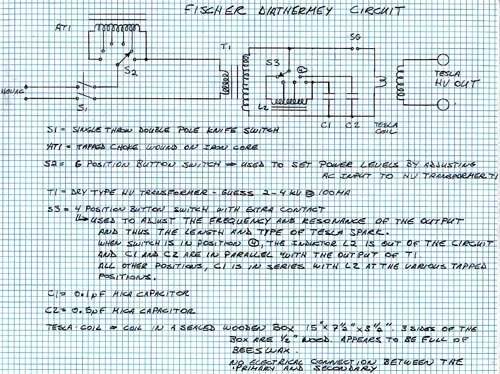 FISCHER DIATHERMEY CIRCUIT
AT1
T1
SG
S3
④
S2
L2
C1
C2
TESLA
HV OUT
110VAC
S1
TESLA
COIL
S1 = SINGLE THROW DOUBLE POLE KNIFE SWITCH
AT1 = TAPPED CHOKE WOUND ON IRON CORE
S2 = 6 POSITION BUTTON SWITCH → USED TO SET POWER LEVELS BY ADJUSTING
AC INPUT TO HV TRANSFORMER T1
T1 = DRY TYPE HV TRANSFORMER - GUESS 2-4 KV @ 100MA
S3 = 4 POSITION BUTTON SWITCH WITH EXTRA CONTACT
↳ USED TO ADJUST THE FREQUENCY AND RESONANCE OF THE OUTPUT
AND THUS THE LENGTH AND TYPE OF TESLA SPARK.
WHEN SWITCH IS IN POSITION ④, THE INDUCTOR L2 IS OUT OF THE CIRCUIT
AND C1 AND C2 ARE IN PARALLEL WITH THE OUTPUT OF T1
ALL OTHER POSITIONS, C1 IS IN SERIES WITH L2 AT THE VARIOUS TAPPED
POSITIONS.
C1 = 0.1µF MICA CAPACITOR
C2 = 0.5µF MICA CAPACITOR
TESLA COIL = COIL IN A SEALED WOODEN BOX 15" x 7½" x 3½". 3 SIDES OF THE
BOX ARE ½" WOOD. APPEARS TO BE FULL OF
BEESWAX.
NO ELECTRICAL CONNECTION BETWEEN THE
PRIMARY AND SECONDARY